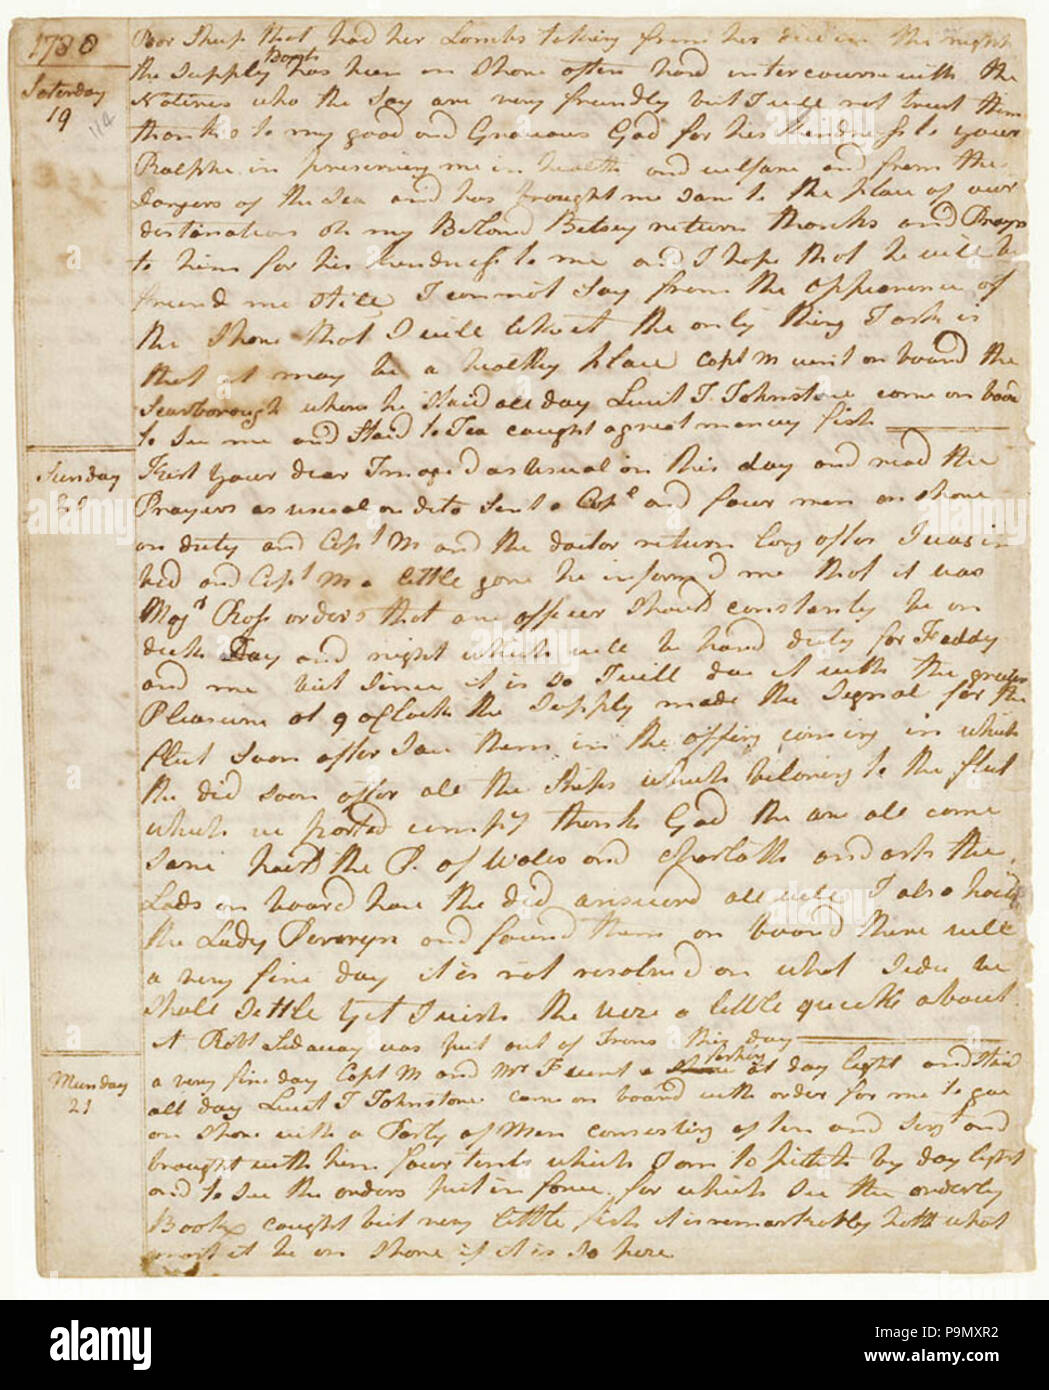 1788
Poor Sheep that had her Lambs taking from her died in the night
Saturday
19
114
the Supply Boats has been on Shore often had intercourse with the
Natives who the Say are very friendly but I will not trust them
thanks to my good and Gracious God for his kindness to your
Ralphe in preserving me in health and welfare and from the
dangers of the Sea and has brought me Safe to the place of our
destination oh my Beloved Betsey return thanks and Prays
to him for his kindness to me and I hope that he will be
freind me Still I cannot Say from the appearance of
the Shore that I will like it the only thing I ask is
that it may be a healthy place Capt M went on board the
Scarborough where he Staid all day Lieut J Johnstone came on board
to See me and Staid to Tea caught a great maney fish
Sunday
20
Kist your dear Image as usual on this day and read the
Prayers as usual on ditto Sent a Copl and four men on shore
on duty and Capt M and the doctor return long after I was in
bed and Capt M a little gone he informd me that it was
Majr Ross orders that one officer Should constantly be on
deck Day and night which will be hard duty for Faddy
and me but Since it is So I will doe it with the greates
Pleasure at 9 oClock the Supply made the Signal for the
fleet Soon after Saw them in the offing coming in which
the did soon after all the Ships which belong to the fleet
which we parted compy thank God the are all come
Save haild the P. of Wales and Charlotte and ask the
Lads on board how the did answerd all well I also haild
the Lady Penrryn and found them on board there well
a very fine day it is not resolved on what Side we
Shall Settle yet I wish the were a little quicke about
it Robt Sidaway was put out of Irons this day
Munday
21
a very fine day Capt M and Mr F went a fishing at day light and Staid
all day Lieut J Johnstone came on board with order for me to goe
on Shore with a Party of Men consisting of ten and Sergt and
brought with him four tents which I am to pitch by day light
and to See the orders put in force for which See the orderly
Book caught but very little fish it is remarkebly hott what
must it be on Shore if it is So here
alamy
Image ID: P9MXR2
www.alamy.com